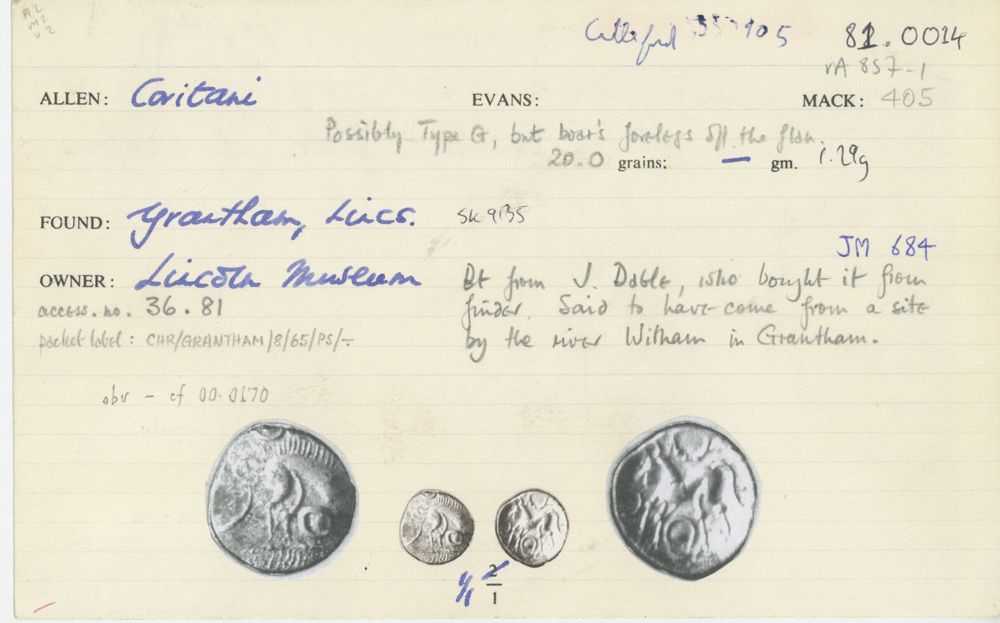 A2
M2
V2
81.0014
VA 857-1
ALLEN: Coritani EVANS: MACK: 405
Possibly Type G, but boar's forelegs off the flan.
20.0 grains: — gm. 1.29g
FOUND: Grantham, Lincs. SK 9135
JM 684
OWNER: Lincoln Museum
access. no. 36.81
packet label: CHR/GRANTHAM/8/65/PS/-
Bt from J. Dable, who bought it from
finder. Said to have come from a site
by the river Witham in Grantham.
obv - cf 00.0170
1/1 2/1